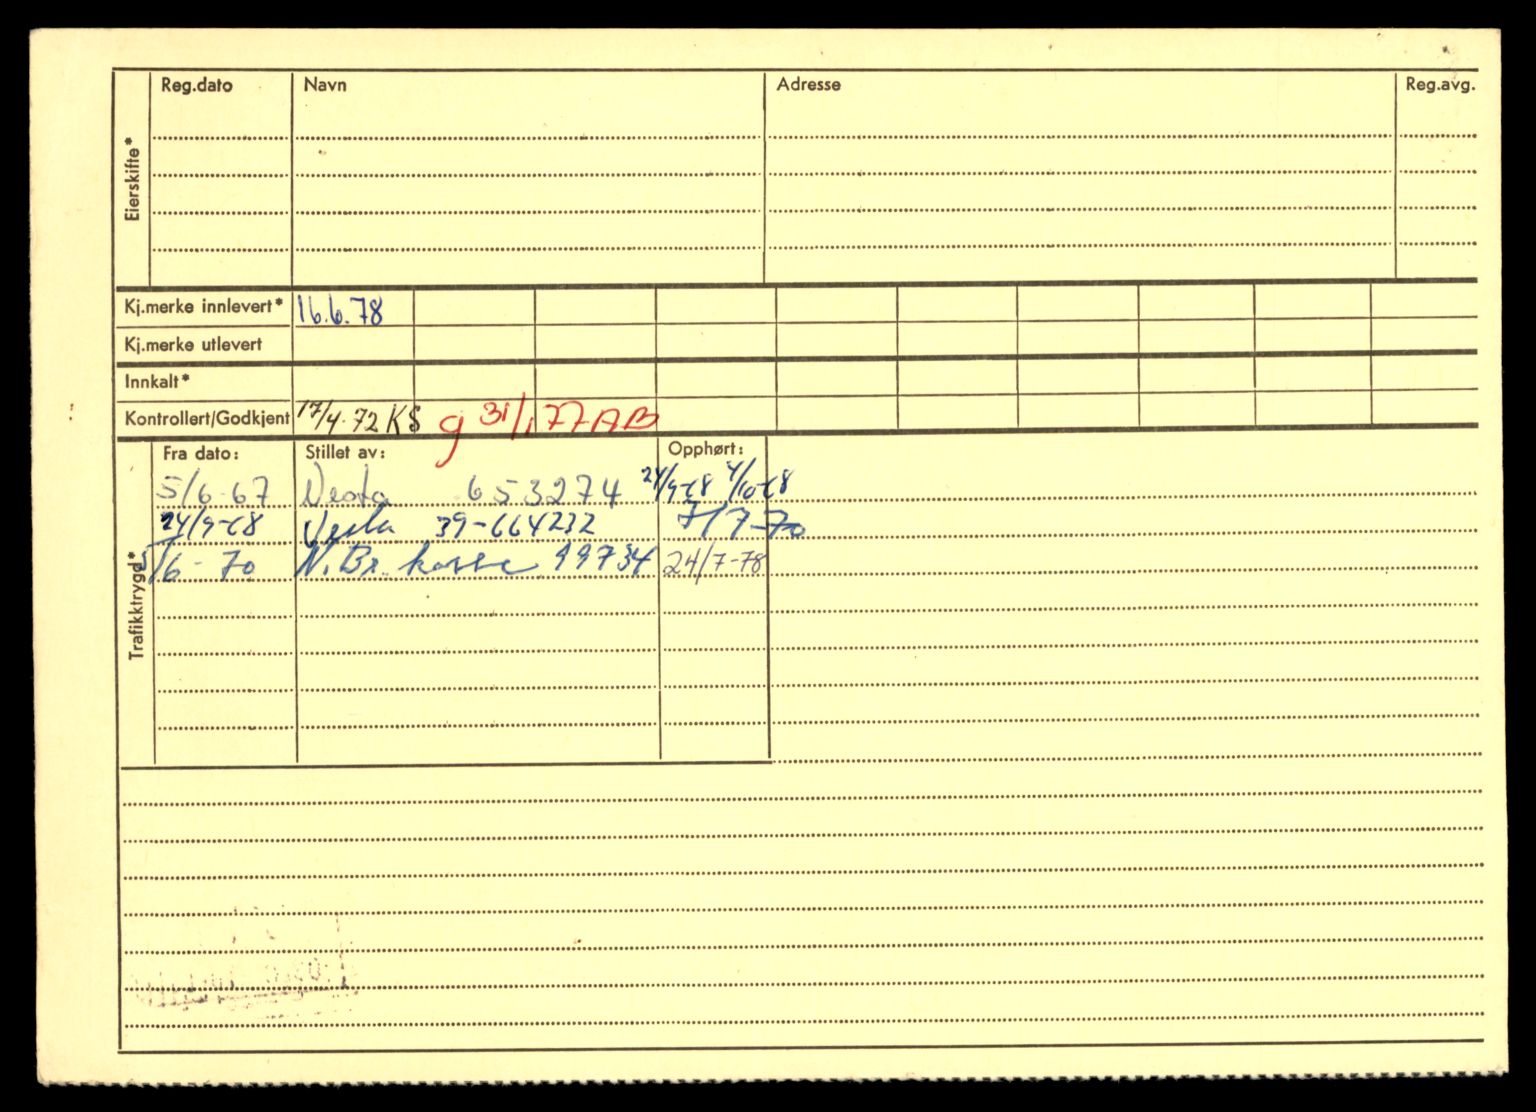 Eierskifte*
Reg.dato Navn Adresse Reg.avg.
Kj.merke innlevert* 16.6.78
Kj.merke utlevert
Innkalt*
Kontrollert/Godkjent 17/4.72 KS g 31/1 77 AB
Trafikktrygd*
Fra dato: Stillet av: Opphørt:
5/6-67 Vesta 653274 24/9-68 4/10-68
24/9-68 Vesta 39-664232 7/7-70
5/6-70 N.Br.kasse 99734 24/7-78